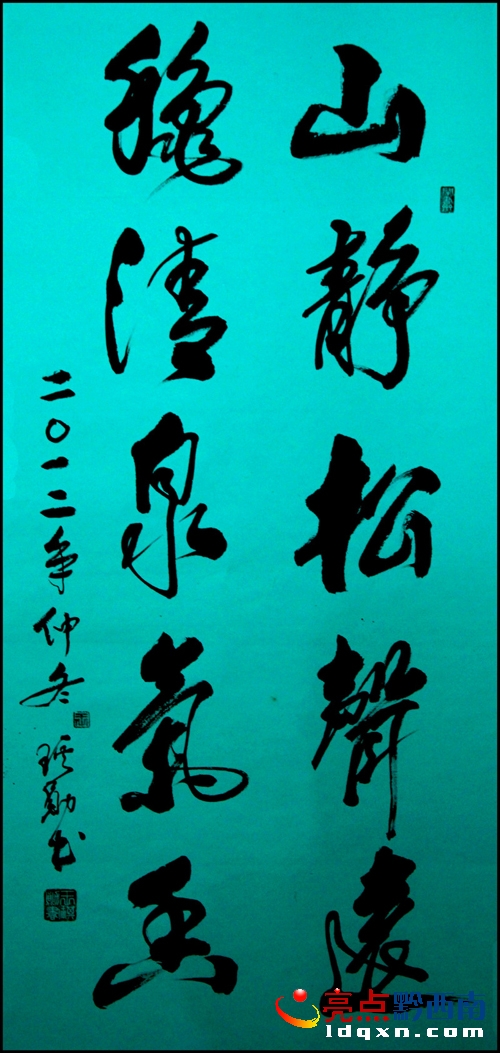 山静松聲遠
穐清泉氣香
二〇一二年仲冬
亮点黔西南
ldqxn.com